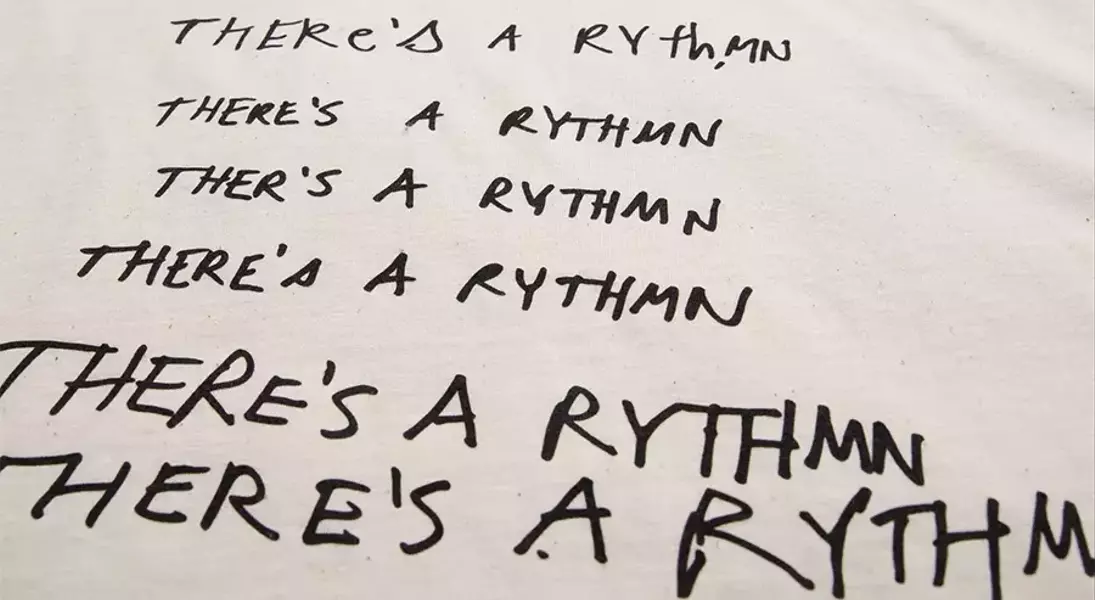 THERe'S A RYthMN
THERE'S A RYTHMN
THER'S A RYTHMN
THERE'S A RYTHMN
THERE'S A RYTHMN
THERE'S A RYTHM